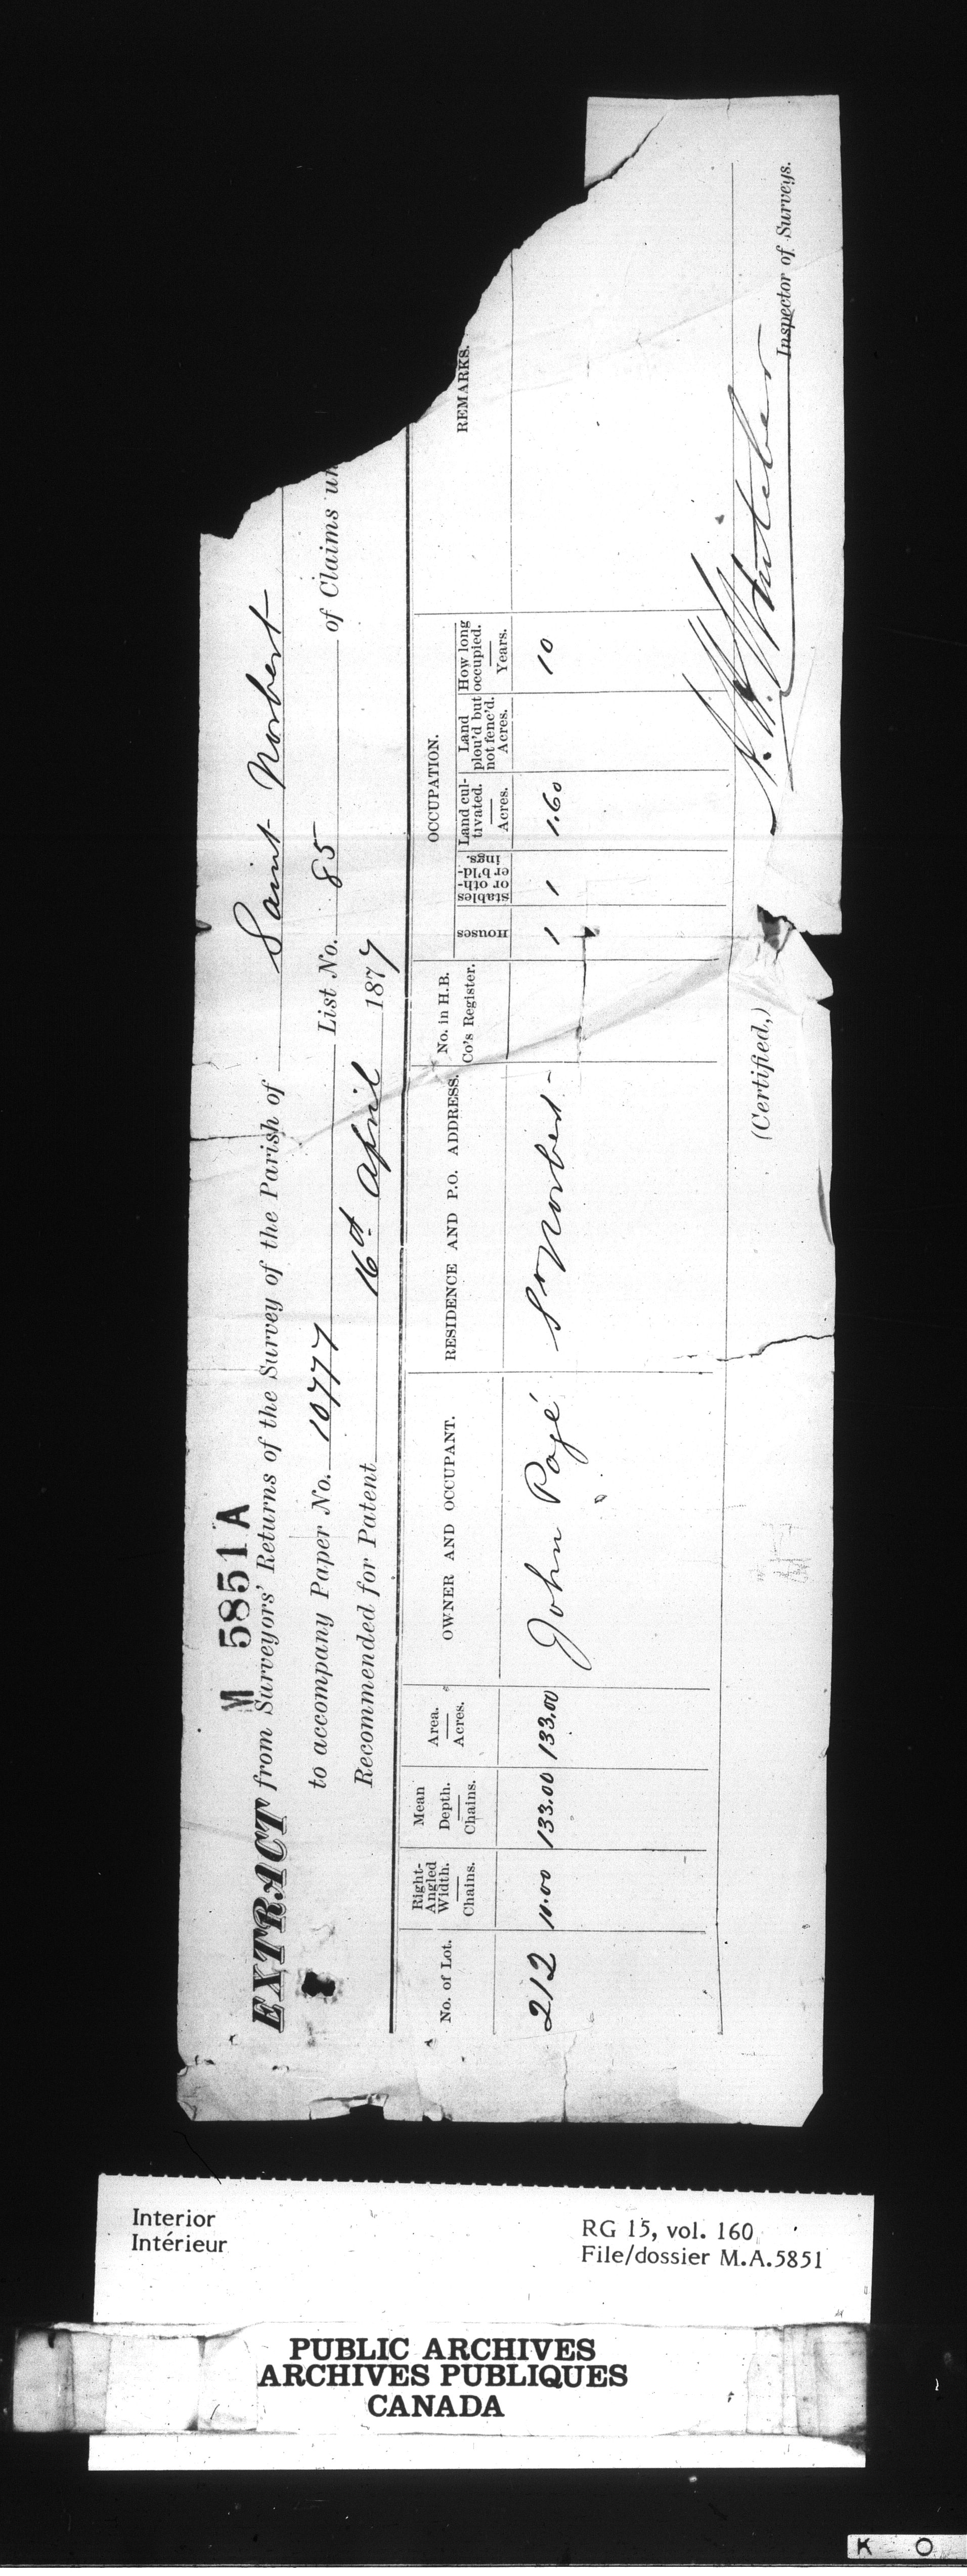 M 5851 A
EXTRACT from Surveyors' Returns of the Survey of the Parish of Saint Norbert
to accompany Paper No. 10777 List No. 85 of Claims un
Recommended for Patent 16th April 1877
No. of Lot. Right-Angled Width. Chains. Mean Depth. Chains. Area. Acres. OWNER AND OCCUPANT. RESIDENCE AND P.O. ADDRESS. No. in H.B. Co's Register. OCCUPATION. REMARKS.
Houses stables or oth-er b'ld-ings. Land cul-tivated. Acres. Land plou'd but not fenc'd. Acres. How long occupied. Years.
212 10.00 133.00 133.00 John Pagé St Norbert 1 1 1.60 10
(Certified,)
Inspector of Surveys.
Interior
Intérieur
RG 15, vol. 160
File/dossier M.A.5851
PUBLIC ARCHIVES
ARCHIVES PUBLIQUES
CANADA
K O